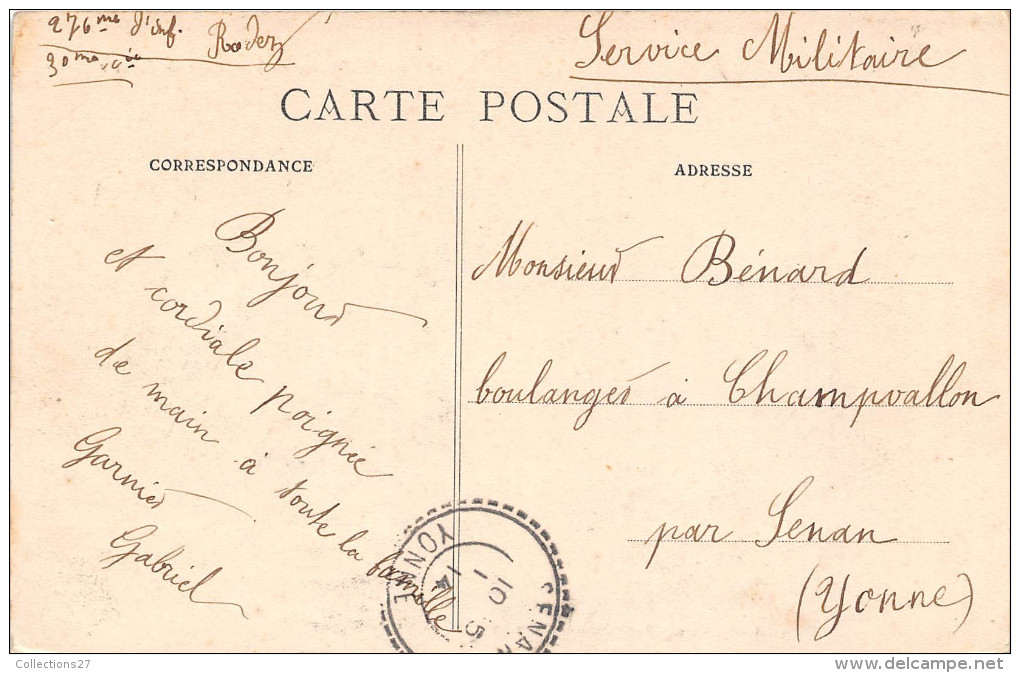 276me d'inf. Rodez
30me cie
Service Militaire
CARTE POSTALE
CORRESPONDANCE
ADRESSE
Bonjour
et cordiale poignée
de main à toute la famille
Garnier
Gabriel
Monsieur Bénard
boulanger à Champvallon
par Senan
(Yonne)
SENAN
YONNE
10 - 5
14
Collections27
www.delcampe.net